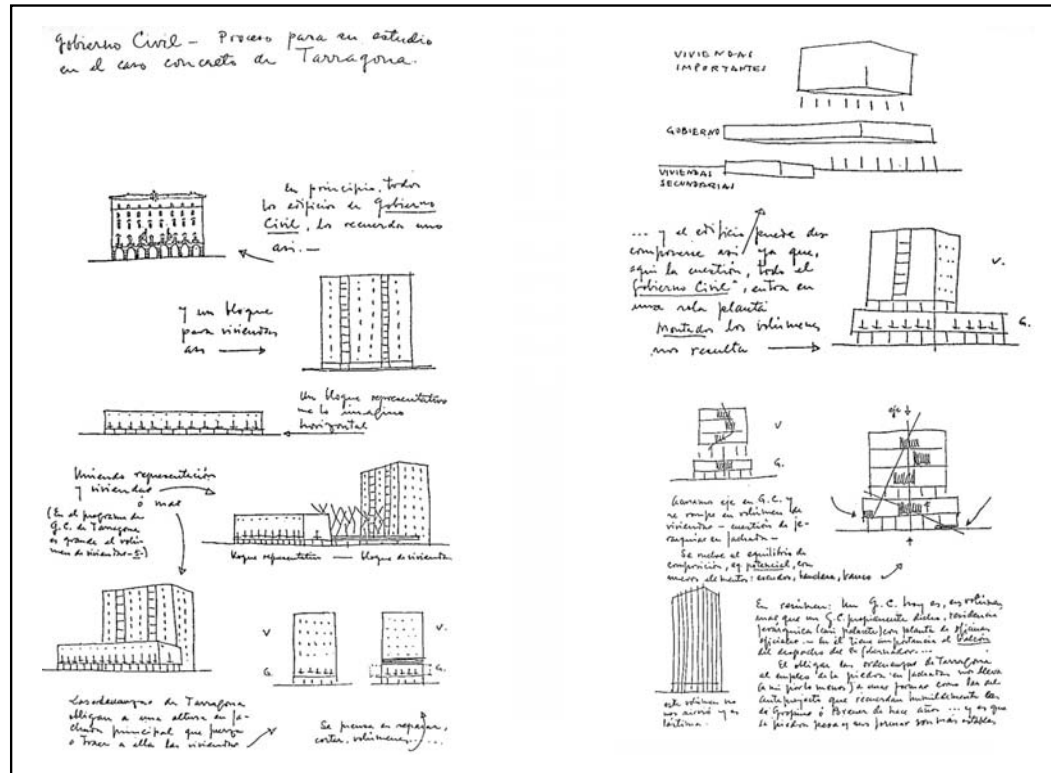 Gobierno Civil – Proceso para su estudio
en el caso concreto de Tarragona.
En principio, todos
los edificios de Gobierno
Civil, los recuerda uno
asi. —
y un bloque
para viviendas
asi
Un bloque representativo
me lo imagino
horizontal
Uniendo representación
y viviendas
ó mas
(En el programa de
G.C. de Tarragona
es grande el volú-
men de viviendas - 5 -)
bloque representativo — bloque de viviendas
V
G.
V.
G.
Las ordenanzas de Tarragona
obligan a una altura en fa-
chada principal que fuerza
a traer a ella las viviendas
Se piensa en separar,
cortar, volúmenes......
VIVIENDAS
IMPORTANTES
GOBIERNO
VIVIENDAS
SECUNDARIAS
... y el edificio puede des
componerse asi ya que,
aqui la cuestión, todo el
"Gobierno Civil", entra en
una sola planta
Montados los volúmenes
nos resulta
V.
G.
V
G.
eje
eje en G.C. y
se rompe en volúmen de
viviendas – cuestión de je-
rarquias en fachada –
Se vuelve al equilibrio de
composición, eq potencial, con
nuevos elementos: escudos, bandera, banco
este volúmen no
nos sirvió y es
lástima.
En resúmen: Un G.C. hoy es, en volúmen,
mas que un G.C. propiamente dicho, residencia
jerárquica (casi palacio) con planta de oficinas
oficiales – en él tiene importancia el balcón
del despacho del Gobernador....
El obligar las ordenanzas de Tarragona
al empleo de la piedra en fachadas nos lleva
(a mi por lo menos) a unas formas como las del
anteproyecto que recuerdan humildemente las
de Gropius ó Breuer de hace años ... y es que
la piedra pesa y sus formas son más estables